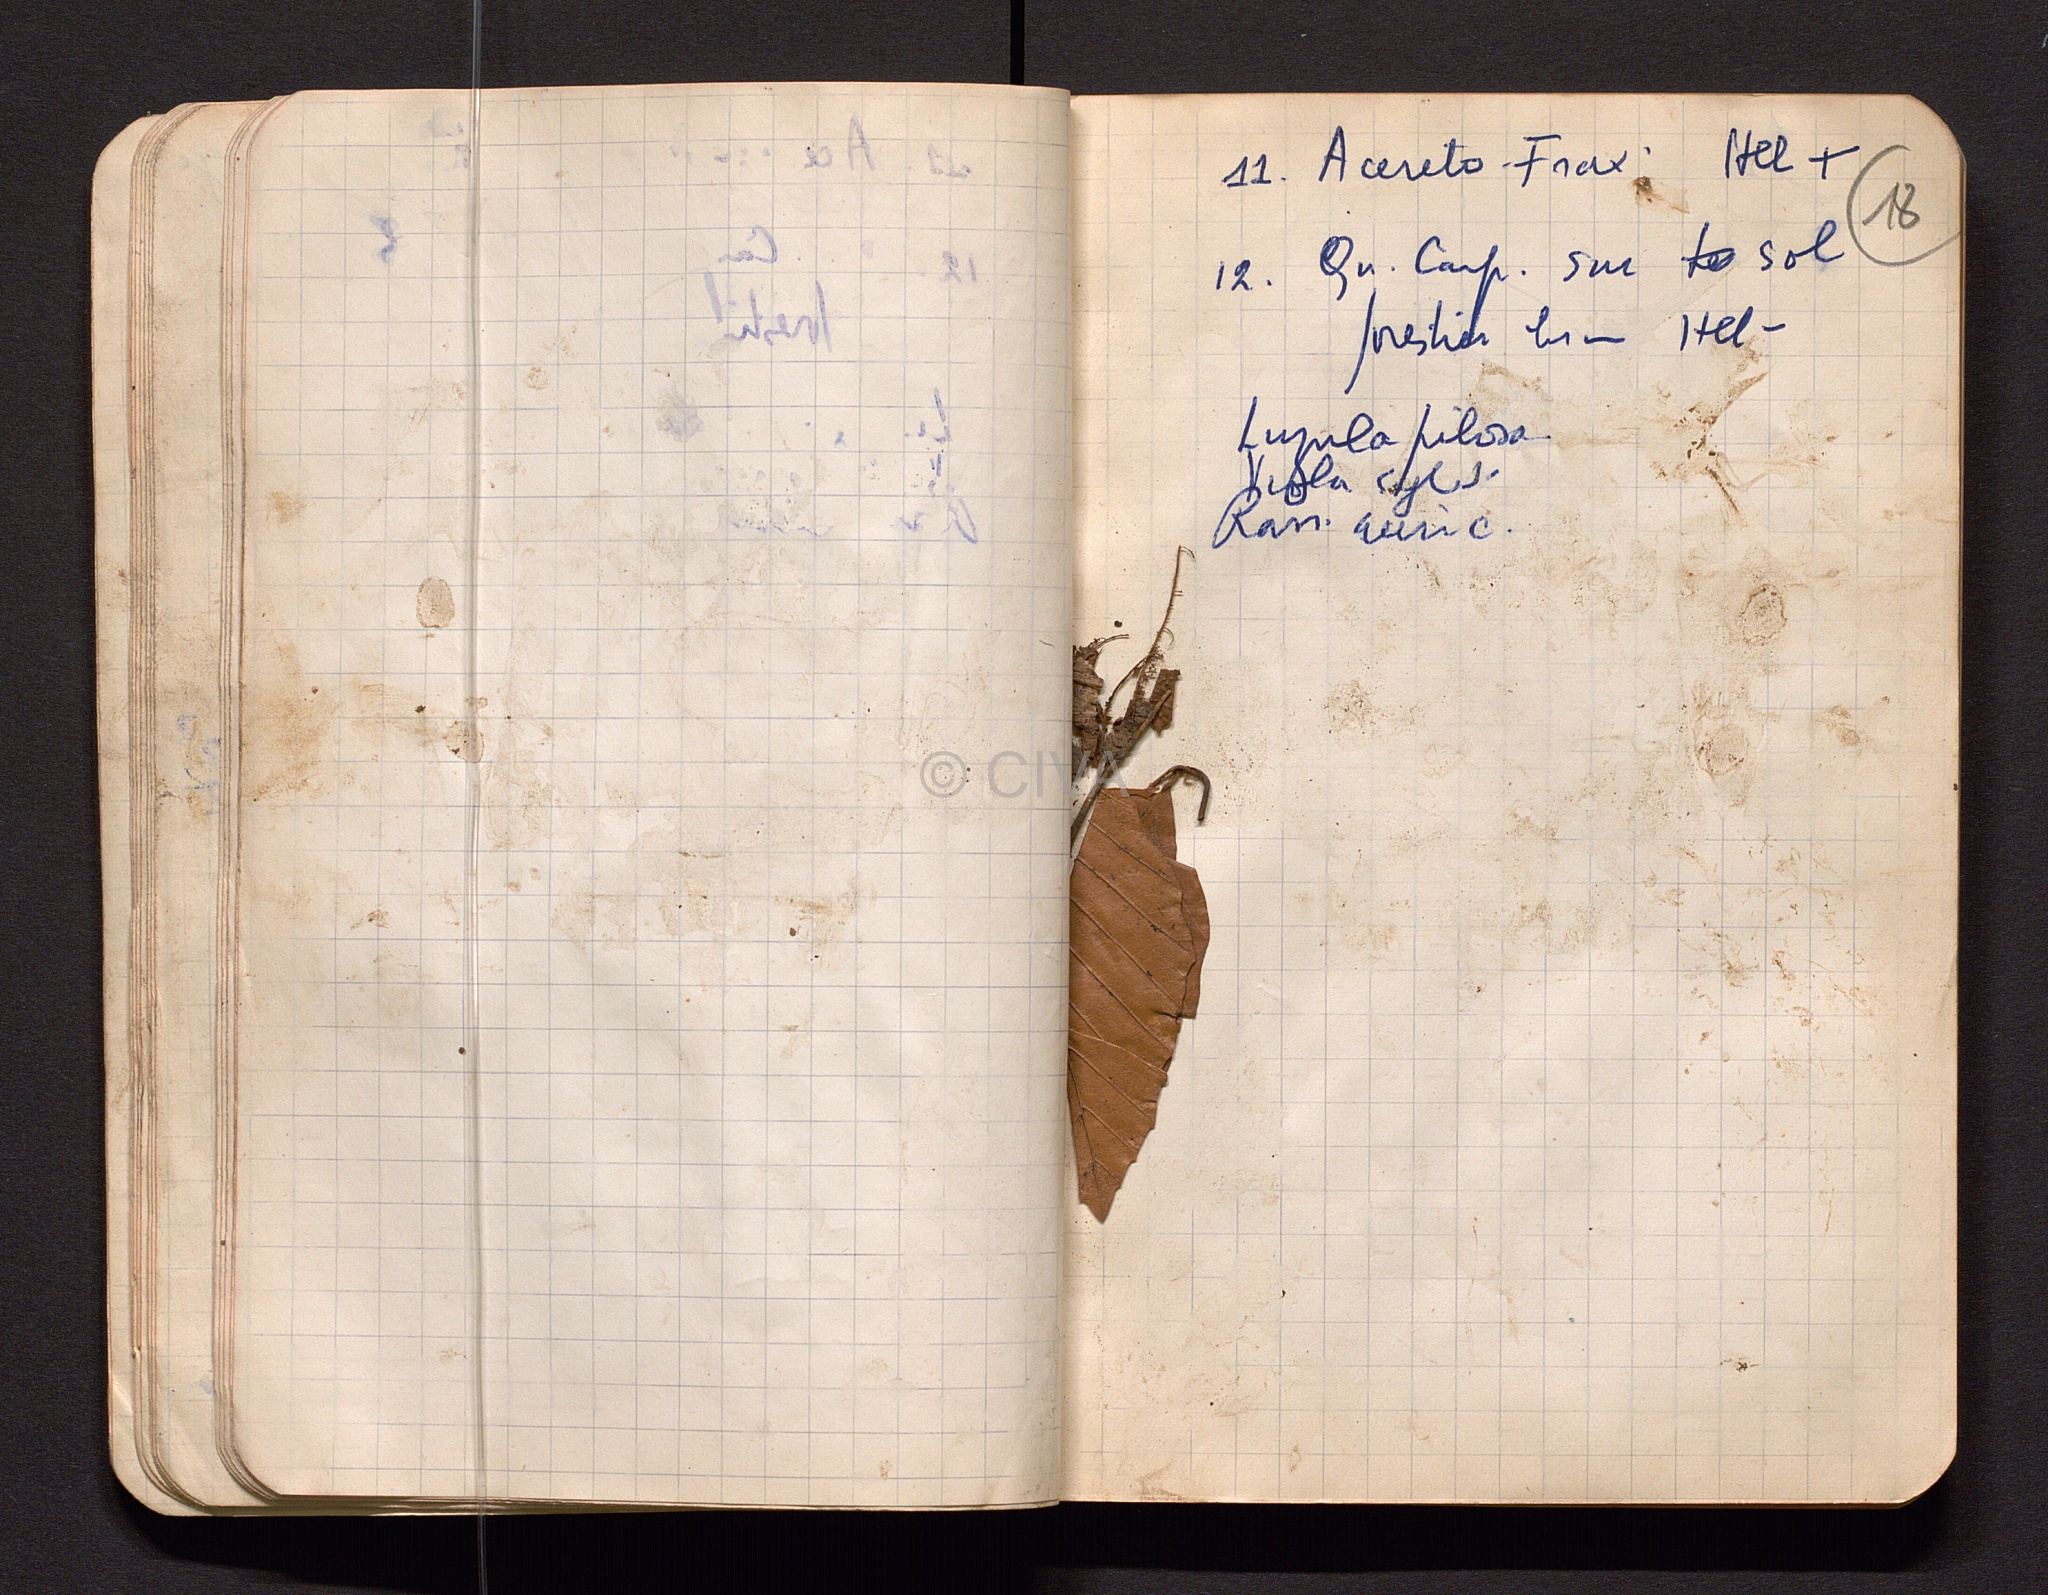 11. Acereto-Frax. HCl +
18
12. Qu. Carp. sur sol
forestier brun HCl -
Luzula pilosa
Viola sylv.
Ran. auric.
© CIVA